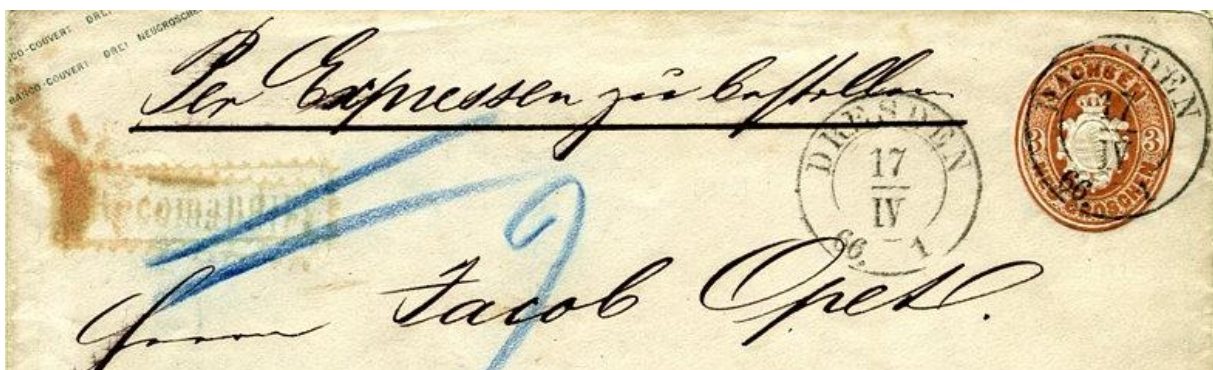 FRANCO-COUVERT DREI NEUGROSCHEN
FRANCO-COUVERT DREI NEUGROSCHEN
Per Expressen zu bestellen
Recomandirt
DRESDEN
17
IV
66. 1
SACHSEN
3 3
NEUGROSCHEN
DRESDEN
17
IV
66. 1
Herrn Jacob Opet.